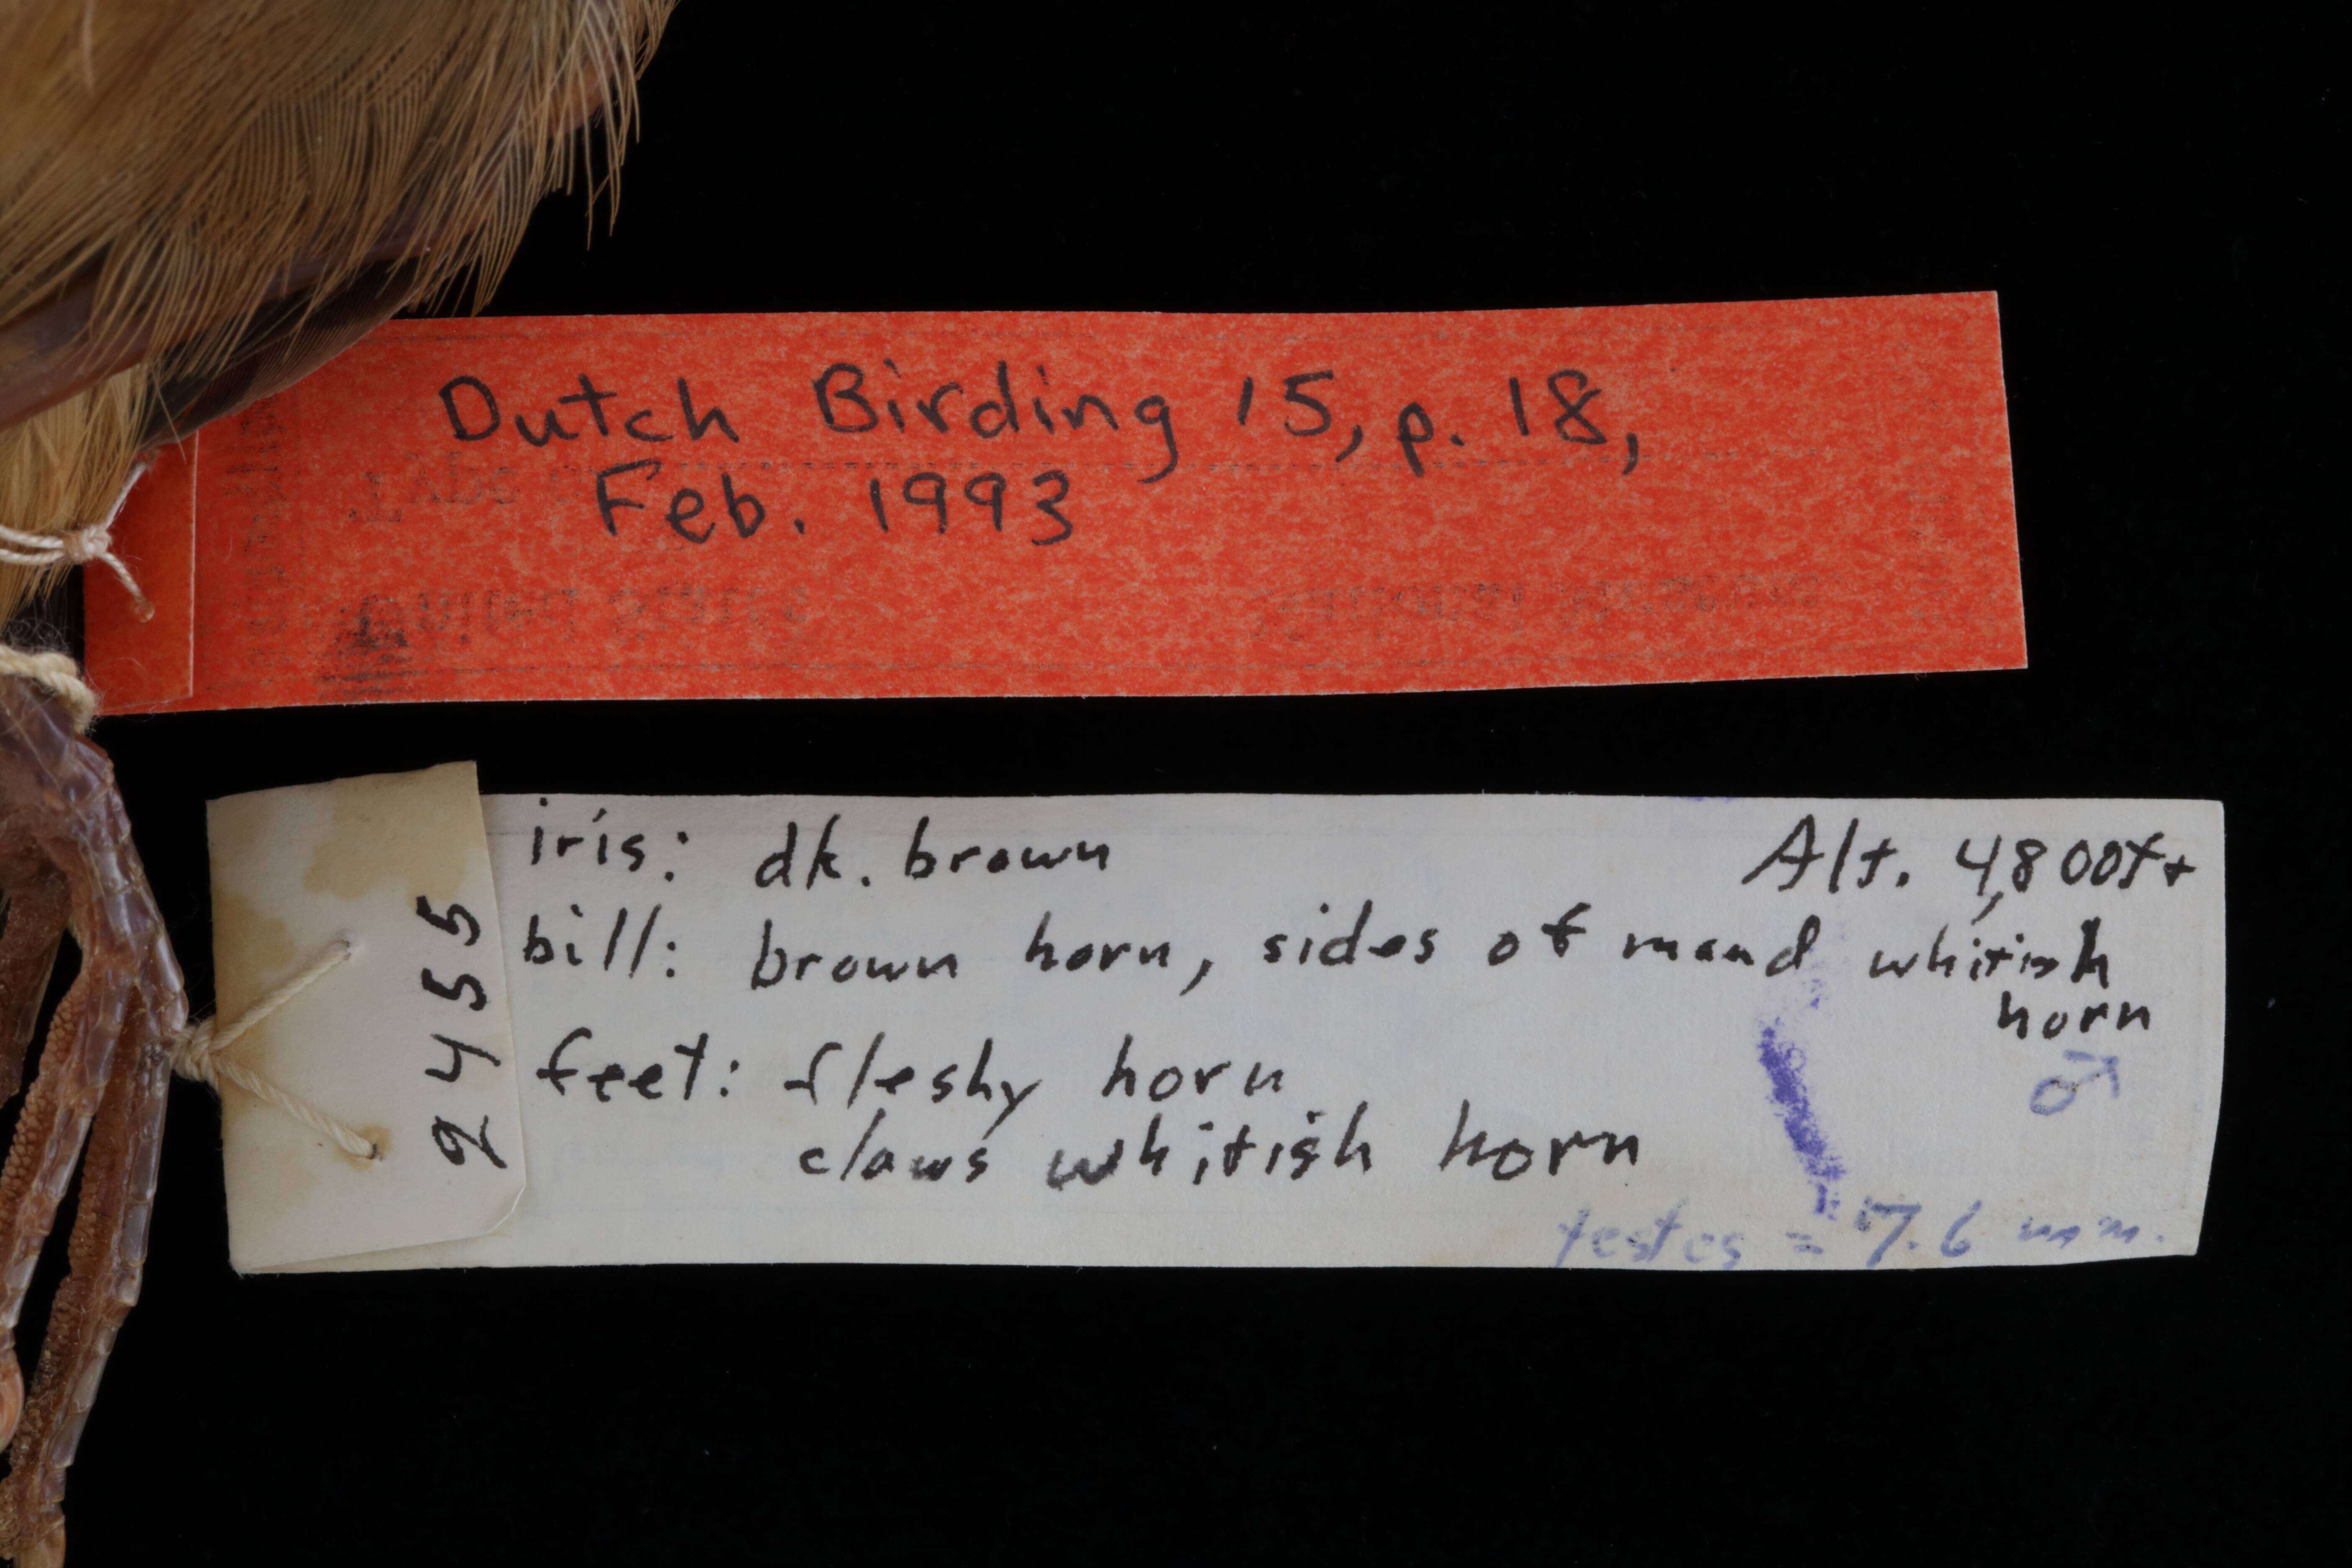 Dutch Birding 15, p. 18,
Feb. 1993
2455
iris: dk. brown
Alt. 4,800ft
bill: brown horn, sides of mand whitish
horn
♂
feet: fleshy horn
claws whitish horn
testes = 7.6 mm.